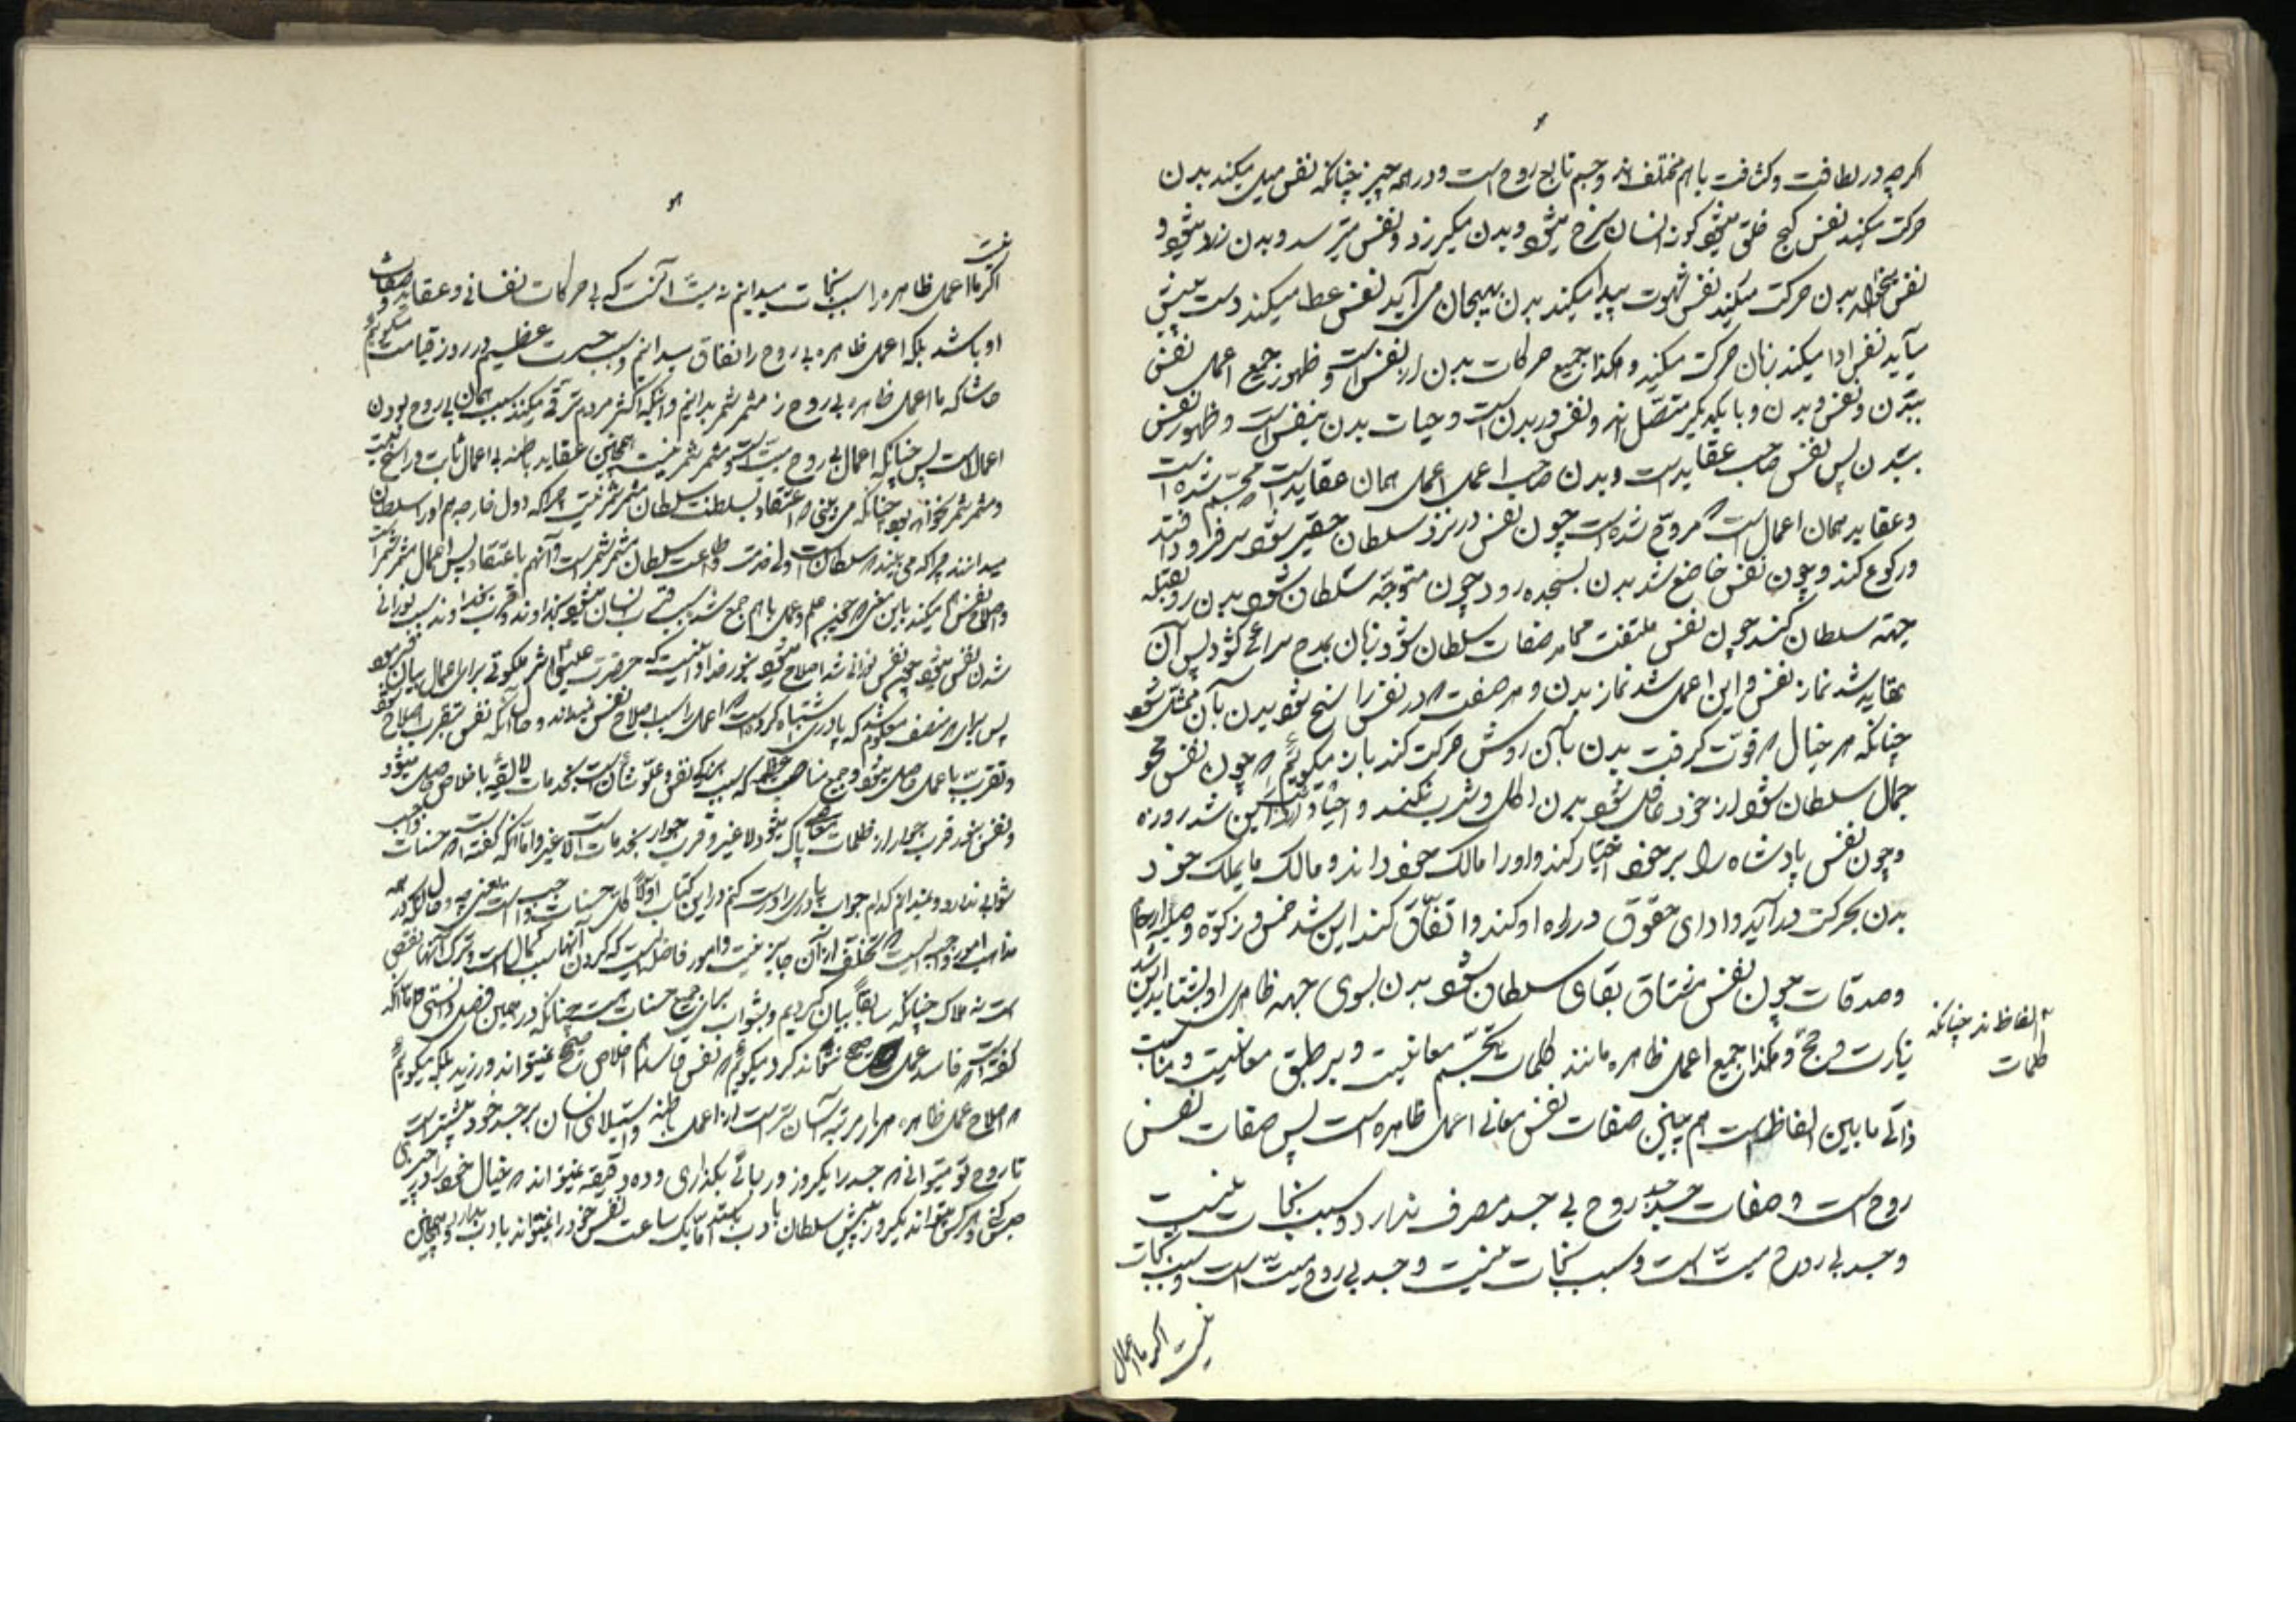 اگرچه در لطافت و کثافت با هم مختلف‌اند و جسم تابع روح است و در همه چیز چنانکه نفس میل میکند بدن
حرکت میکند نفس کج خلق میشود گونه انسان سرخ میشود و بدن میلرزد و نفس میترسد و بدن زرد میشود و
نفس میخواهد بدن حرکت میکند نفس شهوت پیدا میکند بدن بهیجان می‌آید نفس عطا میکند دست پیش
میآید نفس ادا میکند زبان حرکت میکند و هکذا جمیع حرکات بدن از نفس است و ظهور جمیع اعمال نفس
ببدن و نفس و بدن و با یکدیگر متصل‌اند و نفس در بدن است و حیات بدن بنفس است و ظهور نفس
ببدن پس نفس صاحب عقاید است و بدن صاحب اعمال اعمال همان عقاید است مجسم شده است
و عقاید همان اعمال است که مروح شده است چون نفس در نزد سلطان حقیر شود سر فرود افتد
و رکوع کند و چون نفس خاضع شد بدن بسجده رود چون متوجه سلطان شود بدن رو بقبله
جهته سلطان کند چون نفس ملتفت محامد صفات سلطان شود زبان بمدح سرائی گشود پس آن
عقاید شد نماز نفس و این اعمال شد نماز بدن و هر صفت که در نفس راسخ شود بدن بآن ممثل شود
چنانکه هر خیال که قوت گرفت بدن بهمان روش حرکت کند باز میگوئیم که چون نفس محو
جمال سلطان شود از خود غافل شود بدن اکل و شرب نکند و این شد روزه
و چون نفس پادشاه را بر خود اختیار کند و او را مالک خود داند و مالک مایملک خود
بدن بحرکت درآید و ادای حقوق در راه او کند و اتفاق کند این شد خمس و زکوة و صله ارحام
و صدقات چون نفس مشتاق بقای سلطان شود بدن بسوی جهه ظاهری او بشتابد این شد
زیارت و حج و هکذا جمیع اعمال ظاهره مانند کلمات تجسم معانیست و بر طبق معانیست و مناسبت
الفاظند چنانکه
کلمات
ذاتی مابین الفاظ است هم چنین صفات نفس معانی اعمال ظاهره است پس صفات نفس
روح است و صفات جسد جسد روح بی جسد مصرف ندارد و سبب نجات نیست
و جسد بی روح میت است و سبب نجات نیست و جسد بی روح میت است و سبب نجات
نیست اگر ما اعمال
نیست
اگر ما اعمال ظاهره را سبب نجات میدانیم نه میت آنست که بی حرکات نفسانی و عقاید و صفات
او باشد بلکه اعمال ظاهره بی روح را نفاق میدانیم و سبب حسرت عظیم در روز قیامت میگوئیم
حاشا که ما اعمال ظاهره بی روح را مثمر ثمر بدانیم و اینکه اکثر مردم ترقی نمیکنند بسبب همان بی روح بودن
اعمال است پس چنانکه اعمال بی روح میت است و مثمر ثمر نیست همچنین عقاید باطنه بی اعمال ثابت و راسخ نیست
و مثمر ثمر نخواهد بود چنانکه می بینی که اعتقاد بسلطنت سلطان مثمر ثمر نیست چرا که دول خارجه هم او را سلطان
میدانند چرا که می بینند که سلطان است ولی خدمت و اطاعت سلطان مثمر ثمر است و آنهم با اعتقاد پس اعمال مثمر ثمر است
و اصلاح نفس میکند باین معنی که چون علم و عمل با هم جمع شد سبب قرب انسان میشود بخداوند و قرب بخداوند سبب نورانی
شدن نفس میشود چون نفس نورانی شد اصلاح میشود بنور خدا و اینست که حضرت عیسی اثر ملکوتی برای اعمال بیان فرمود
پس برای هر منصف معلوم شد که پادری اشتباه کرده است که اعمال را سبب اصلاح نفس نمیداند و حال آنکه نفس بتقرب اصلاح شود
و تقرب باعمال حاصل میشود و جمیع مناصب که سبب بزرگی نفس و علو شأن است بخدمات لایقه باخلاص حاصل میشود
و نفس بنور قرب جوار از ظلمات معاصی پاک میشود لاغیر و قرب جوار بخدمات است لاغیر و اما آنکه گفته است که حسنات واجب
ثوابی ندارد و نمیدانم کدام جواب پادری را درست کنم در این کتاب اولا کل حسنات واجب است یعنی چه و حال آنکه در همه
مذاهب امور واجبه ایست که تخلف از آن جایز نیست و امور فاضله ایست که کردن آنها سبب کمال است و ترک آنها نقص
است نه هلاک چنانکه سابقا بیان کردیم و ثواب برای جمیع حسنات هست چنانکه در همین فصل دانستی و اما آنکه
گفته است که فاسد عمل صحیح نتواند کرد میگوئیم که نفس فاسد هم اخلاص صحیح نمیتواند ورزید بلکه میگوئیم
که اصلاح عمل ظاهره هزار مرتبه آسان تر است از اعمال باطنه و استیلای انسان بر جسد خود بیشتر است
تا روح تو میتوانی که جسد را یکروز در پائی بگذاری و ده دقیقه نمیتواند که خیال خود را در چیزی
حبس کنی و هر کس میتواند یکروز پیش سلطان با ادب بایستد اما یک ساعت نفس خود را نمیتواند با ادب بدارد و همچنین